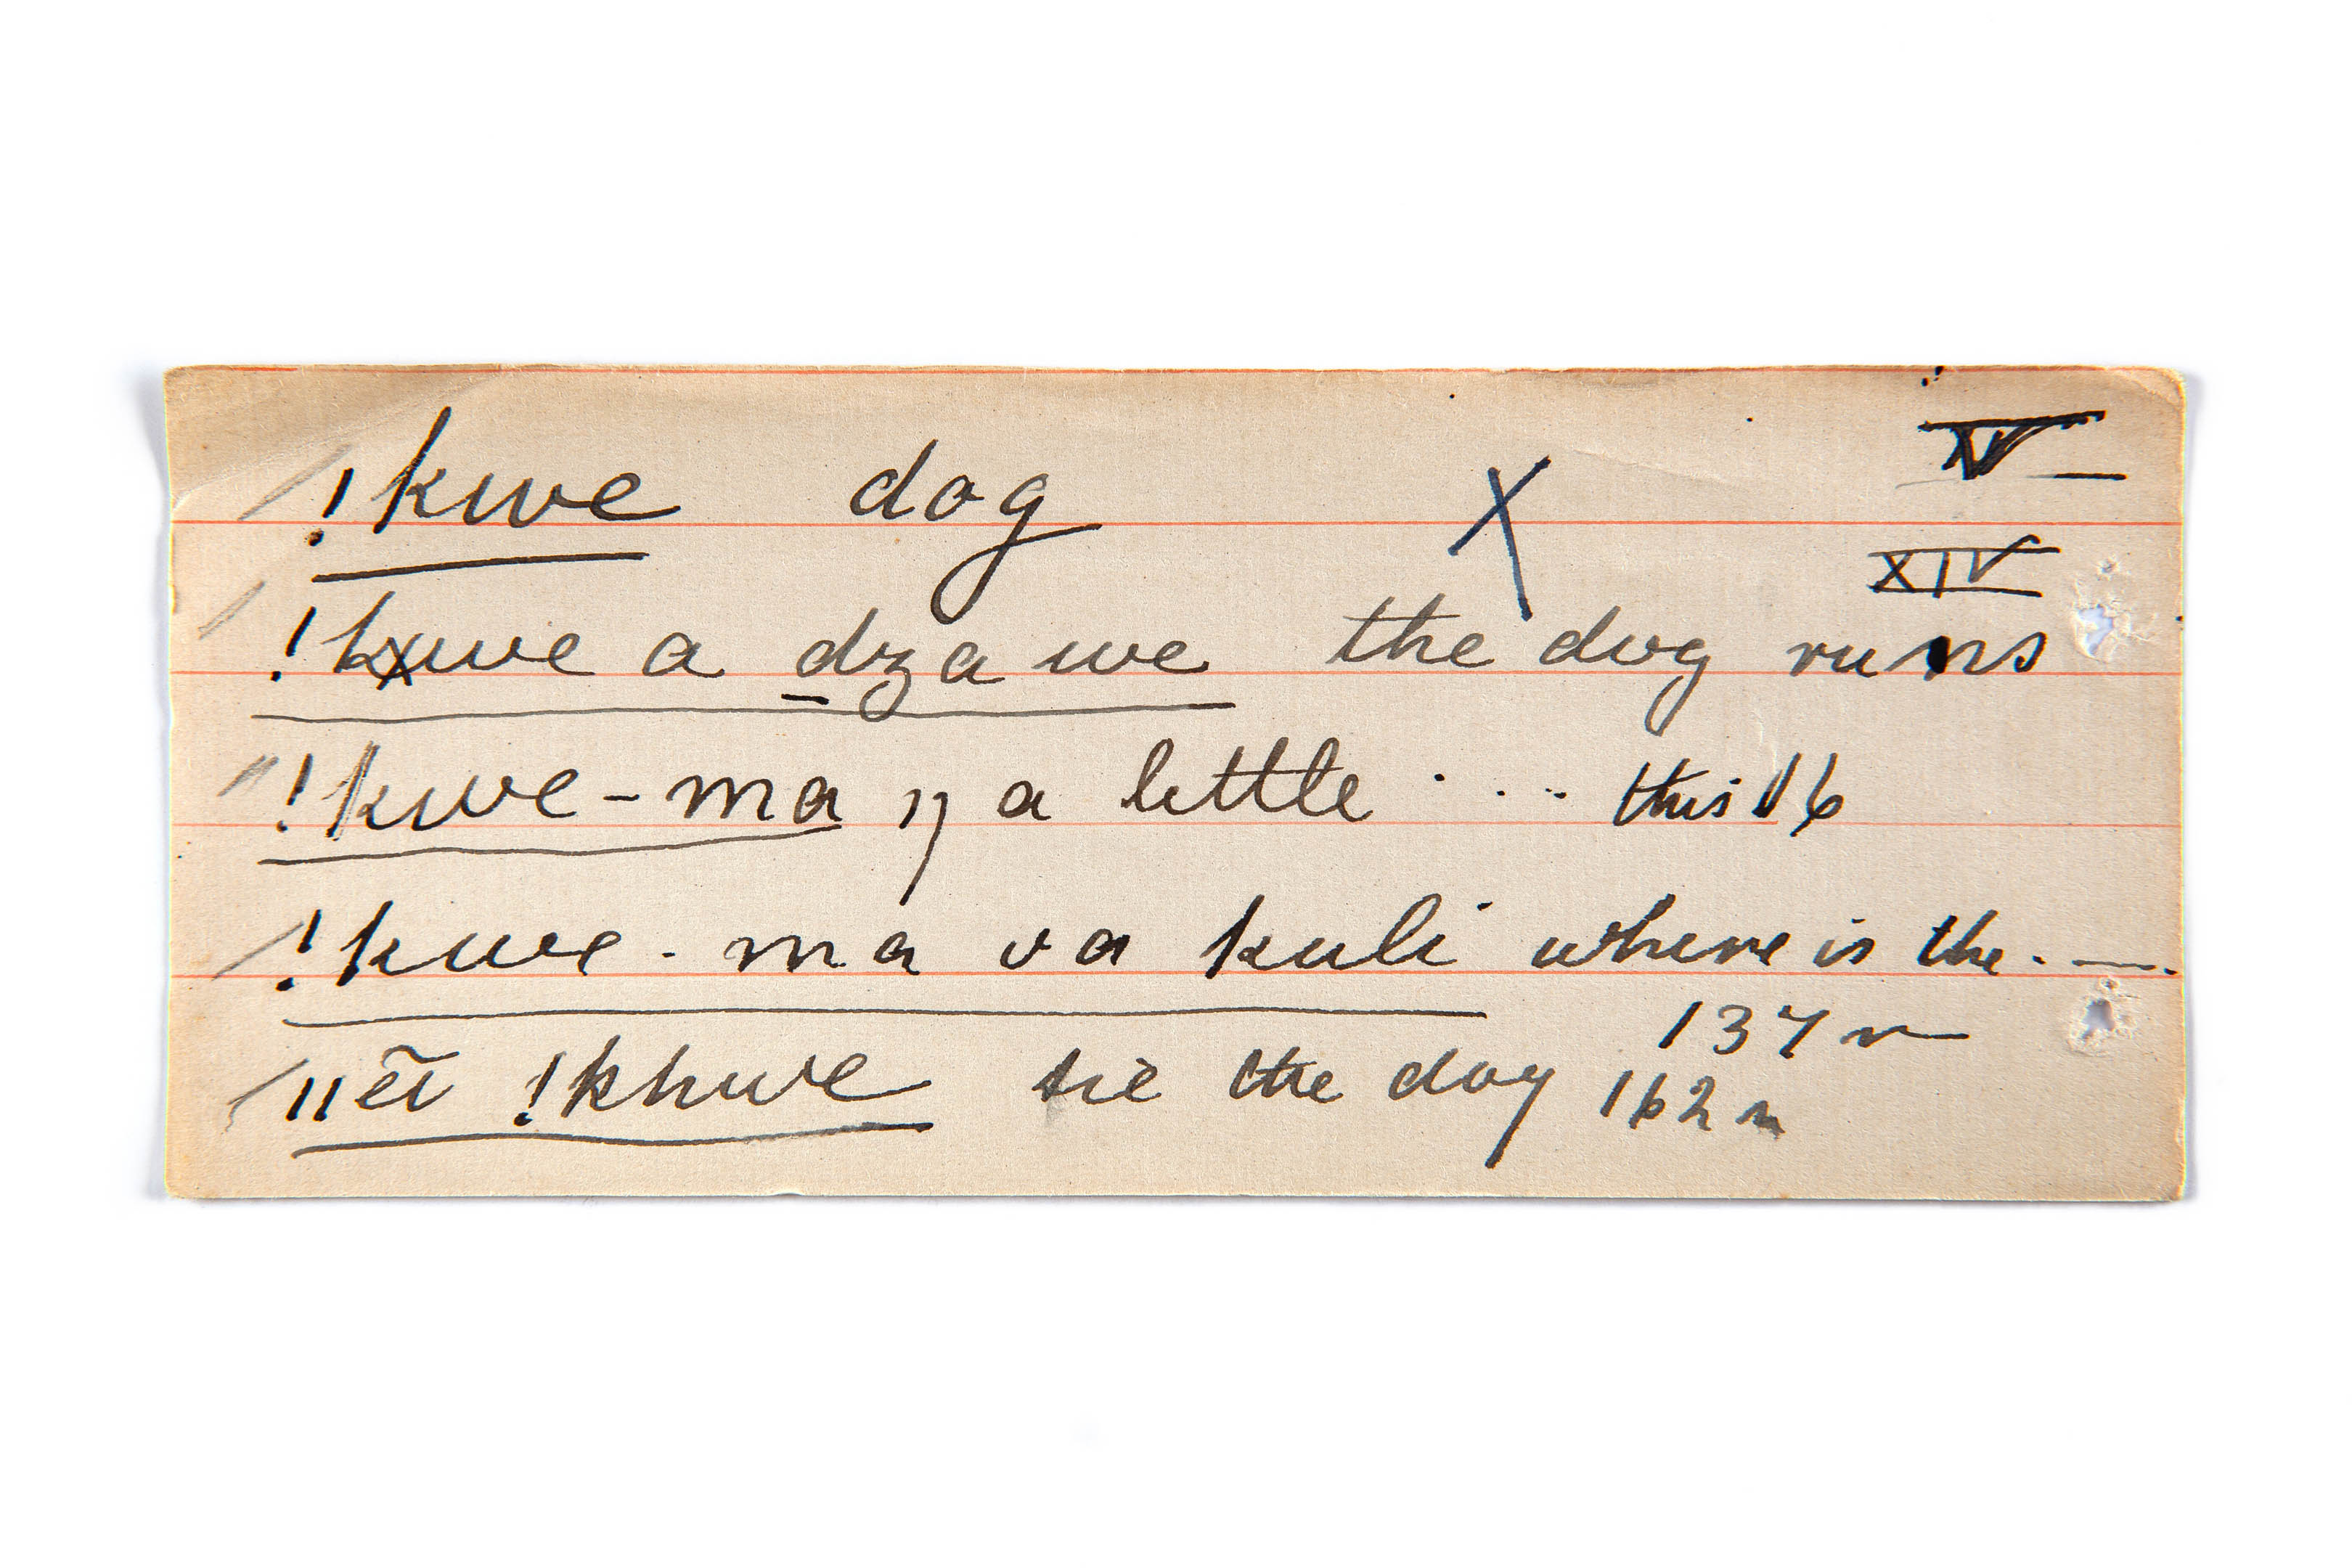 !kwe dog X IV
XIV
!kxwe a dzawe the dog runs
!kwe-ma ŋ a little . . . . this 16
!kwe-ma va kuli where is the . — .
137 r
ǁēĩ !khwe tie the dog 162 r